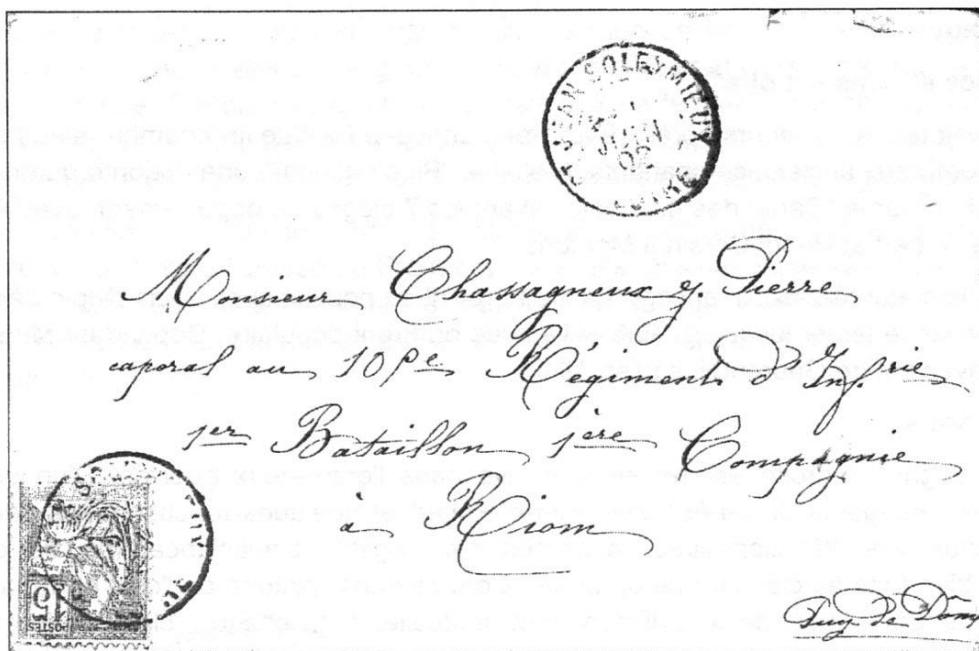 SOLEYMIEUX
Monsieur Chassagneux Pierre
caporal au 105e Régiment d'Inf.rie
1er Bataillon 1ère Compagnie
à Riom
Puy de Dôme
15